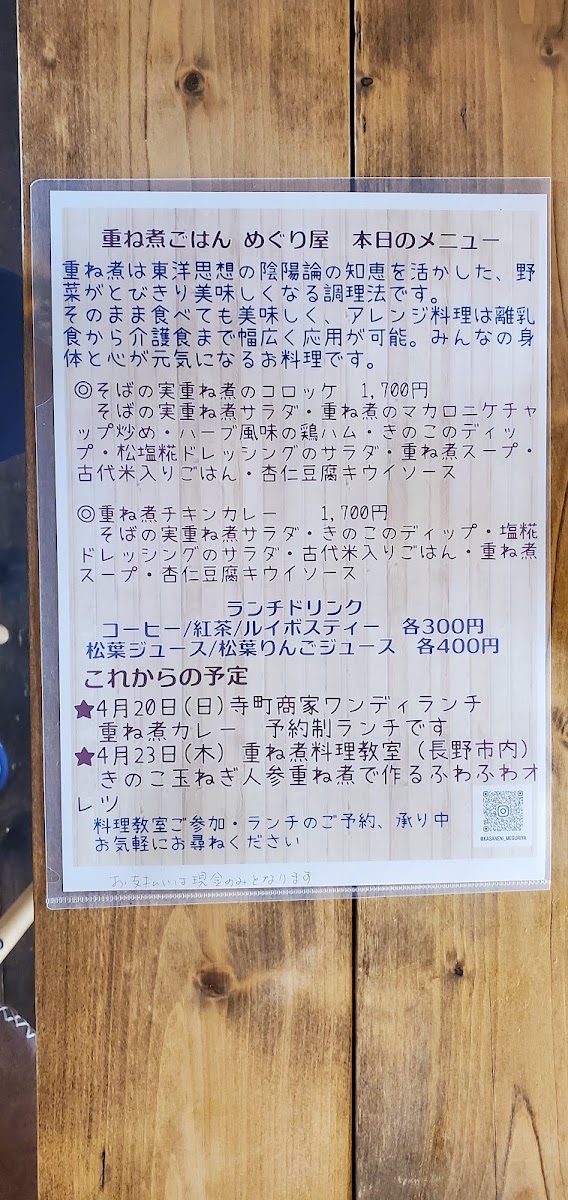 重ね煮ごはん めぐり屋　本日のメニュー
重ね煮は東洋思想の陰陽論の知恵を活かした、野
菜がとびきり美味しくなる調理法です。
そのまま食べても美味しく、アレンジ料理は離乳
食から介護食まで幅広く応用が可能。みんなの身
体と心が元気になるお料理です。
◎そばの実重ね煮のコロッケ　1,700円
そばの実重ね煮サラダ・重ね煮のマカロニケチャ
ップ炒め・ハーブ風味の鶏ハム・きのこのディッ
プ・松塩糀ドレッシングのサラダ・重ね煮スープ・
古代米入りごはん・杏仁豆腐キウイソース
◎重ね煮チキンカレー　1,700円
そばの実重ね煮サラダ・きのこのディップ・塩糀
ドレッシングのサラダ・古代米入りごはん・重ね煮
スープ・杏仁豆腐キウイソース
ランチドリンク
コーヒー/紅茶/ルイボスティー　各300円
松葉ジュース/松葉りんごジュース　各400円
これからの予定
★4月20日(日)寺町商家ワンディランチ
重ね煮カレー　予約制ランチです
★4月23日(木) 重ね煮料理教室（長野市内）
きのこ玉ねぎ人参重ね煮で作るふわふわオ
レツ
料理教室ご参加・ランチのご予約、承り中
お気軽にお尋ねください
@KASANENI_MEGURIYA
お支払いは現金のみとなります